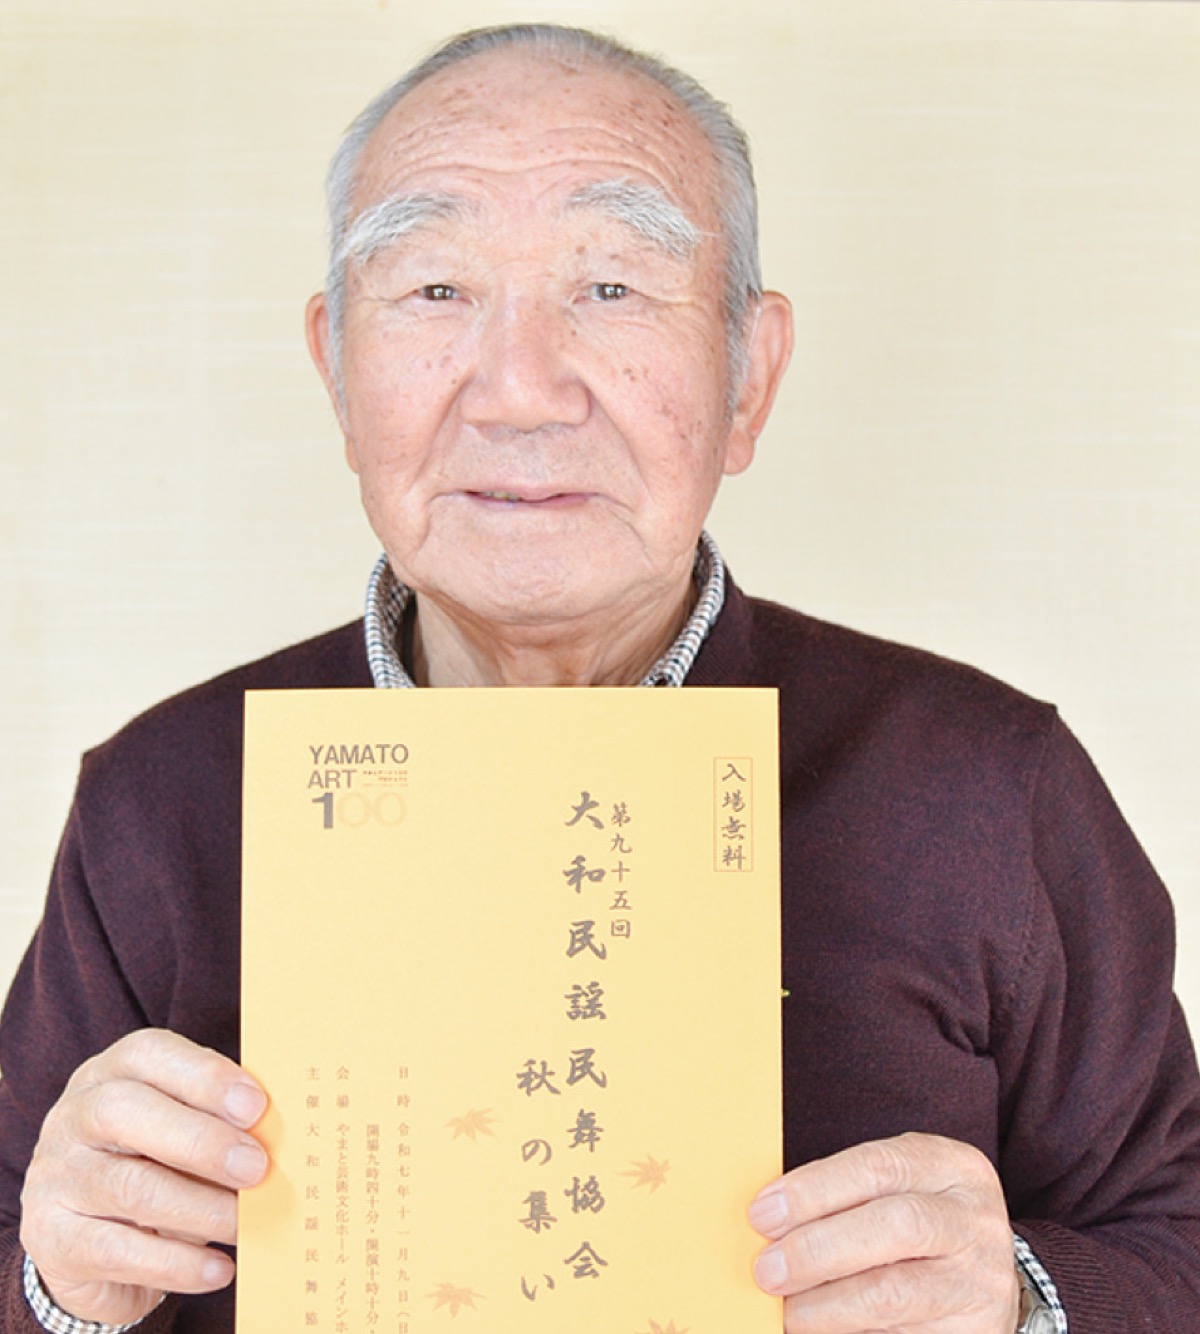 YAMATO
ART
100
入場無料
第九十五回
大和民謡民舞協会
秋の集い
日時 令和七年十一月九日(日
開場九時四十分・開演十時十分・
会場 やまと芸術文化ホール メインホ
主催 大和民謡民舞協